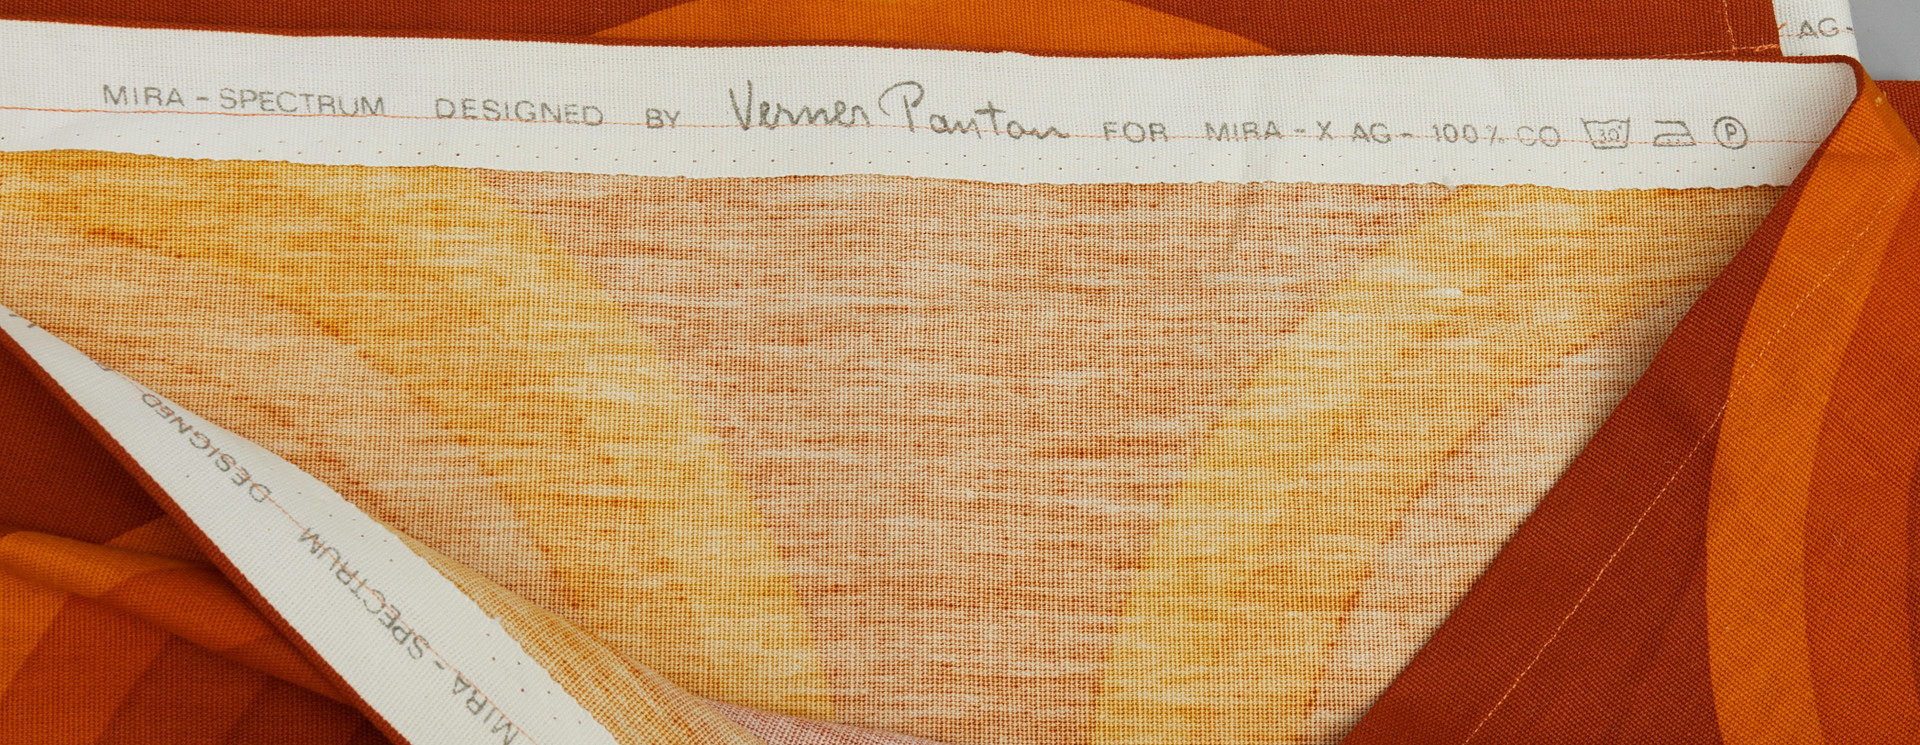 MIRA-SPECTRUM DESIGNED BY Verner Panton FOR MIRA-X AG-100% CO 30° P
AG-
DESIGNED
MIRA-SPECTRUM